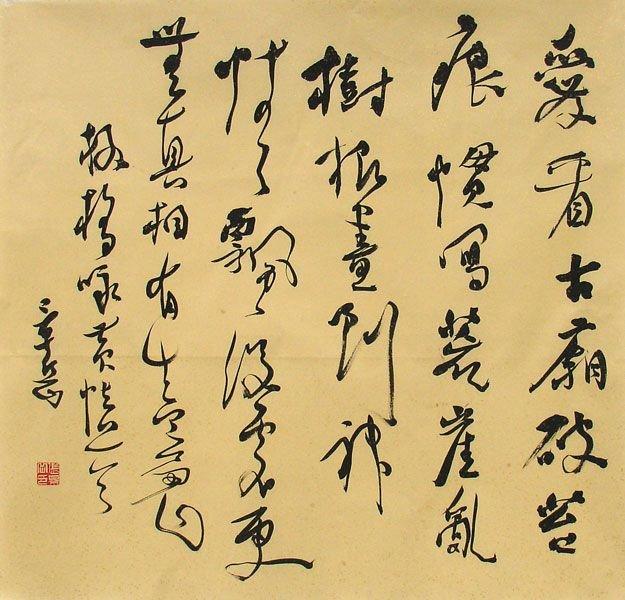 愛看古廟破苔
痕慣寫荒崖亂
樹根畫到神
情飄沒處更
無真相有真魂
板橋詠黃慎